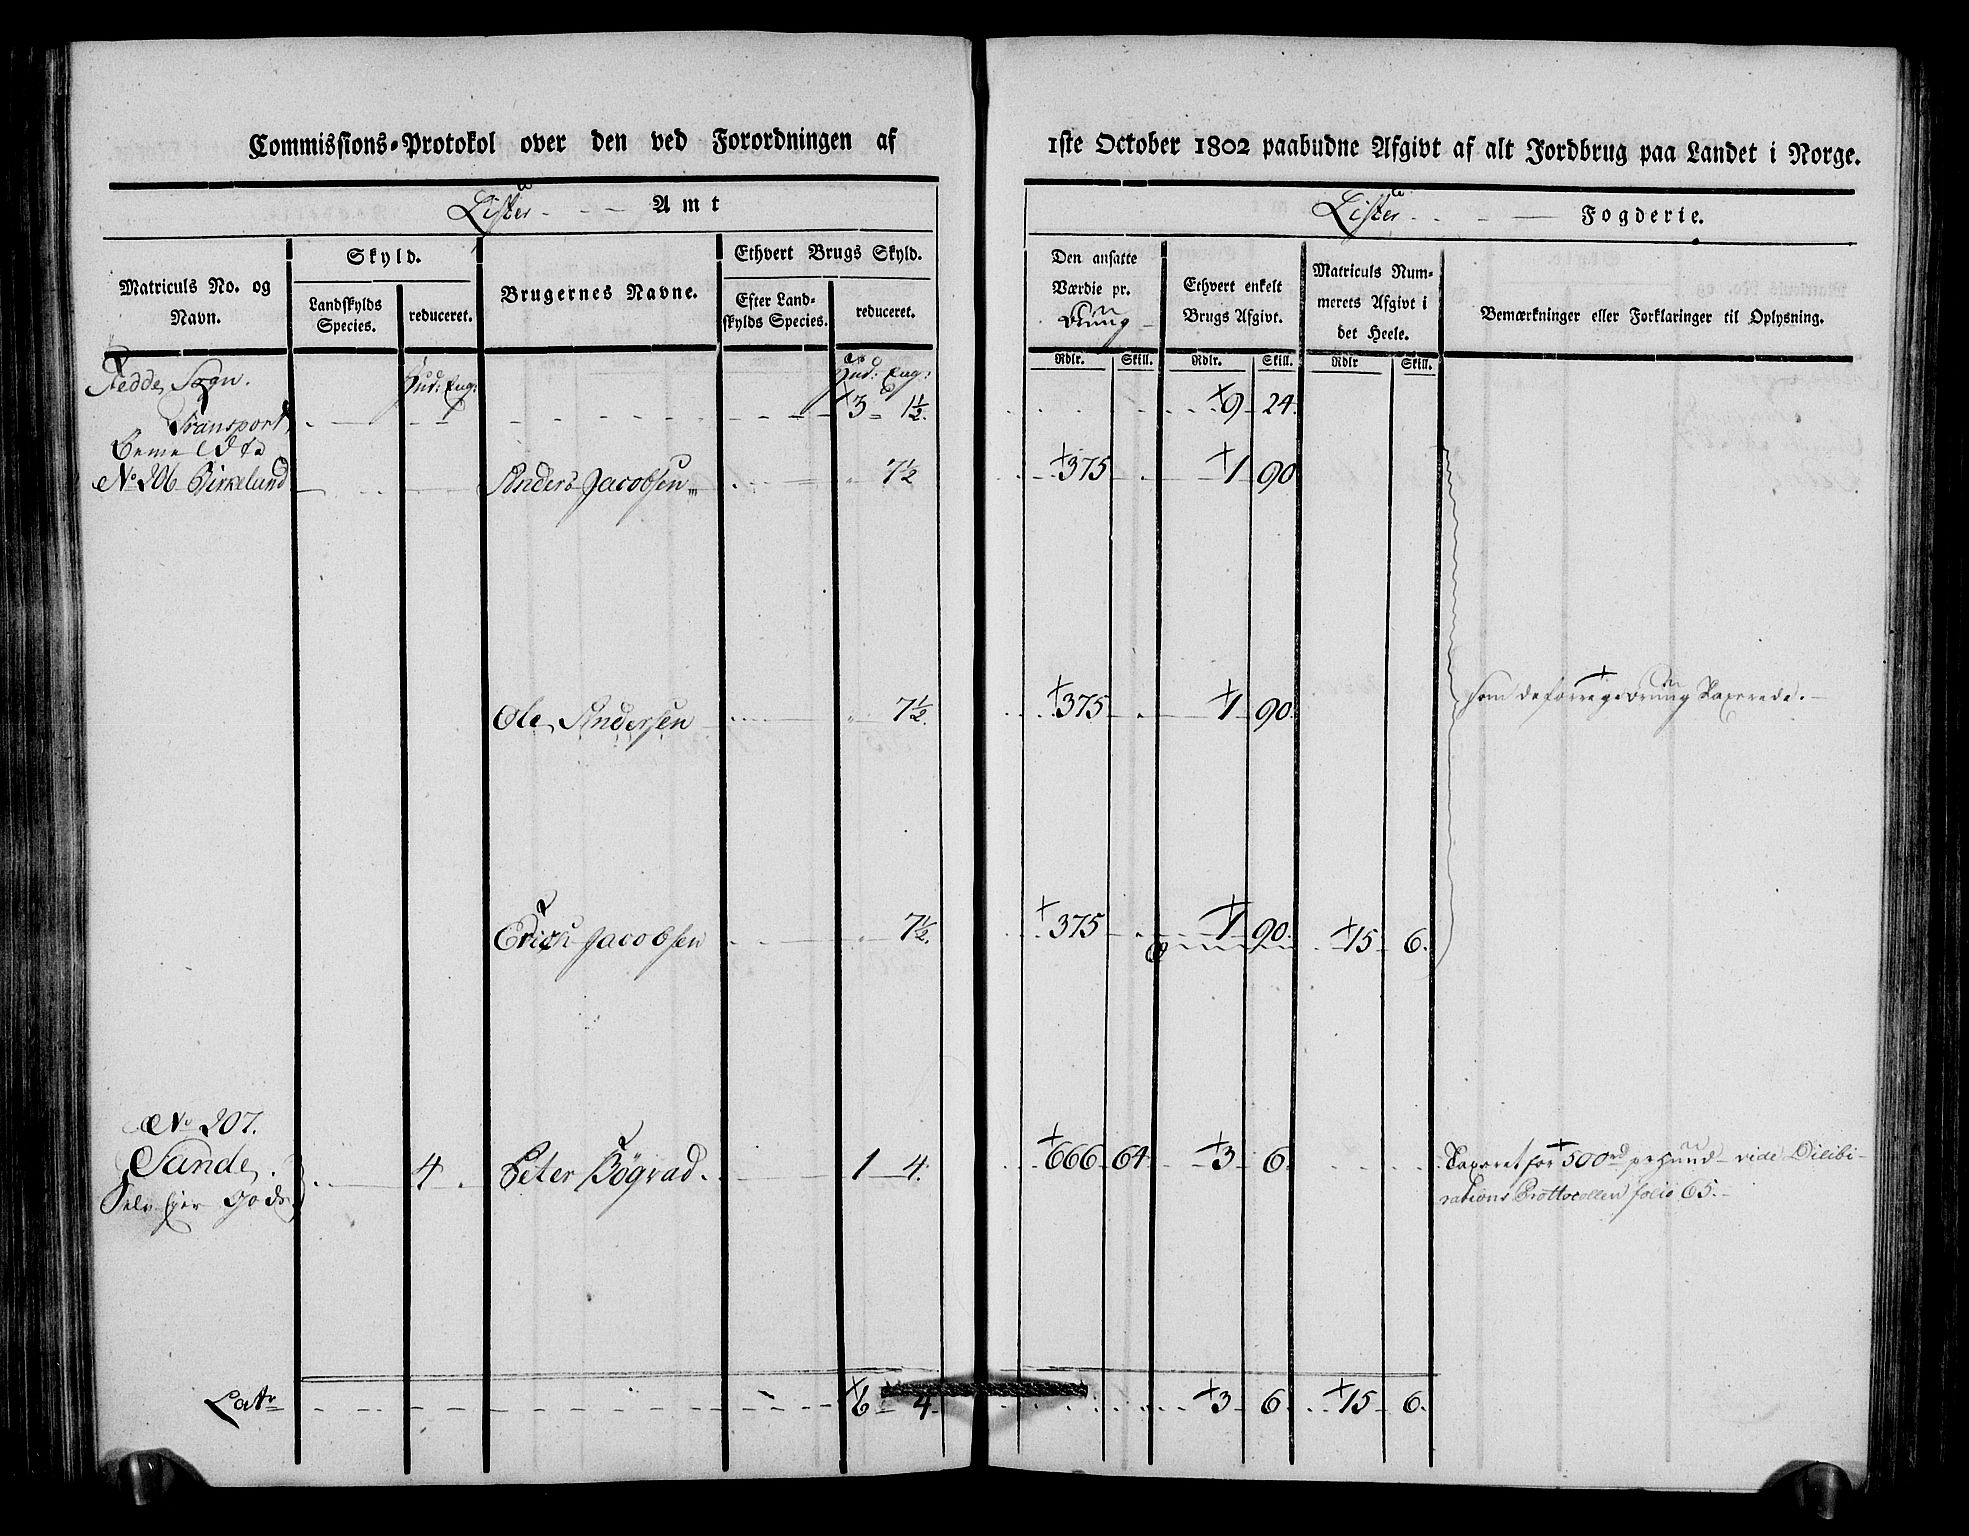 Commissions-Protokol over den ved Forordningen af 1ste October 1802 paabudne Afgivt af alt Jordbrug paa Landet i Norge.
Lister Amt
Lister Fogderie.
Matriculs No. og Navn.
Skyld.
Landskylds Species.
reduceret.
Brugernes Navne.
Ethvert Brugs Skyld.
Efter Landskylds Species.
reduceret.
Den ansatte Værdie pr. Hung
Ethvert enkelt Brugs Afgivt.
Matriculs Nummerets Afgivt i det Heele.
Bemærkninger eller Forklaringer til Oplysning.
Rdlr. Skill. Rdlr. Skill. Rdlr Skill.
Fedde Sogn. Hud: Eng: Hud: Eng:
Transport 3 1½ 9 24
bemeldte
No 206 Birkelund Anders Jacobsen 7½ 375 1 90
Ole Andersen 7½ 375 1 90 som de forrige Taxerede.
Erich Jacobsen 7½ 375 1 90 15 6
No 207.
Sande. 4 Peter Bögvad. 1 4 666 64 3 6 Taxeret for 500rd pr Huud vide Dilibi-
Selv Ejer Gods rations Prottocollen folio 65.
Latr 6 4 3 6 15 6